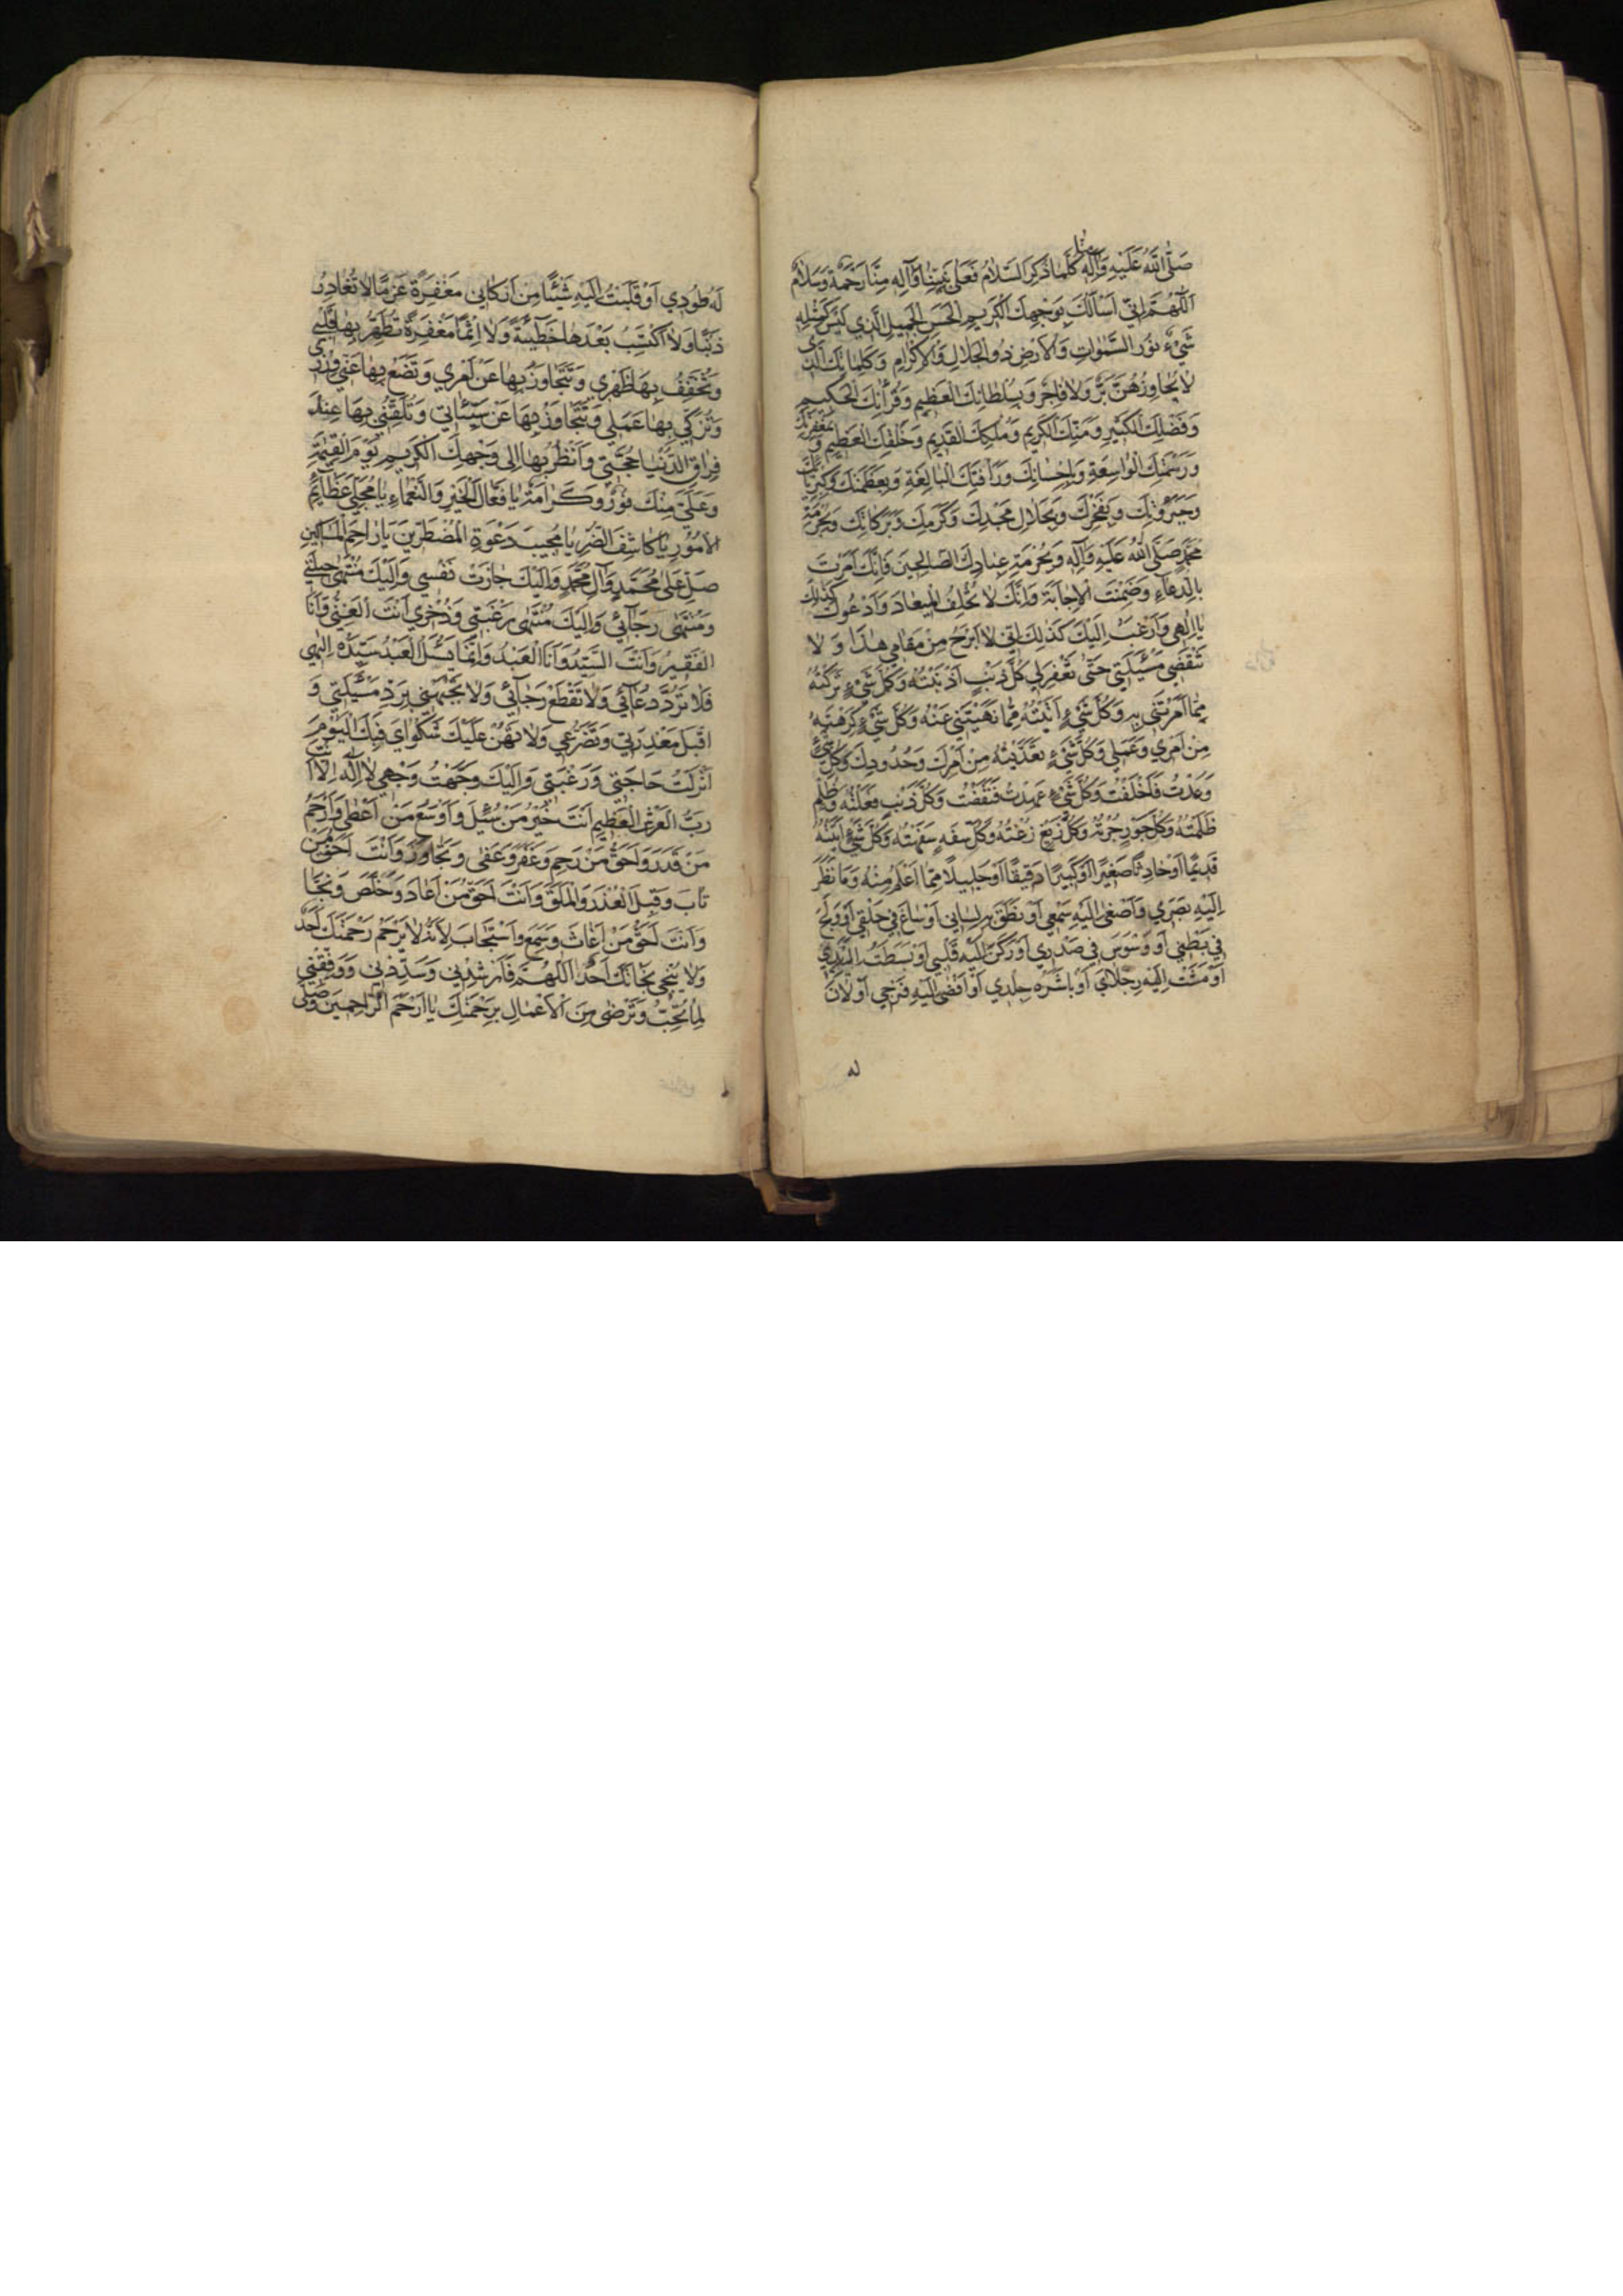 صَلَّى اللّٰهُ عَلَيْهِ وَآلِهِ كُلَّمَا ذُكِرَ السَّلَامُ فَعَلَى نَبِيِّنَا وَآلِهِ مِنَّا رَحْمَةٌ وَسَلَامٌ
اَللّٰهُمَّ اِنِّي اَسْاَلُكَ بِوَجْهِكَ الْكَرِيمِ الْحَسَنِ الْجَمِيلِ الَّذِي لَيْسَ كَمِثْلِهِ
شَيْءٌ نُورِ السَّمٰوَاتِ وَالْاَرْضِ ذُو الْجَلَالِ وَالْاِكْرَامِ وَكَلِمَاتِكَ الَّتِي
لَا يُجَاوِزُهُنَّ بَرٌّ وَلَا فَاجِرٌ وَبِسُلْطَانِكَ الْعَظِيمِ وَقُرْآنِكَ الْحَكِيمِ
وَفَضْلِكَ الْكَبِيرِ وَمَنِّكَ الْكَرِيمِ وَمُلْكِكَ الْقَدِيمِ وَخَلْقِكَ الْعَظِيمِ وَ بِمَغْفِرَتِكَ
وَرَحْمَتِكَ الْوَاسِعَةِ وَبِاِحْسَانِكَ وَرَأْفَتِكَ الْبَالِغَةِ وَبِعَظَمَتِكَ وَكِبْرِيَائِكَ
وَجَبَرُوتِكَ وَبِفَخْرِكَ وَبِجَلَالِ مَجْدِكَ وَكَرَمِكَ وَبَرَكَاتِكَ وَبِحُرْمَةِ
مُحَمَّدٍ صَلَّى اللّٰهُ عَلَيْهِ وَآلِهِ وَبِحُرْمَةِ عِبَادِكَ الصَّالِحِينَ فَاِنَّكَ اَمَرْتَ
بِالدُّعَاءِ وَضَمِنْتَ الْاِجَابَةَ وَاِنَّكَ لَا تُخْلِفُ الْمِيعَادَ وَاَدْعُوكَ كَذٰلِكَ
يَا اِلٰهِي وَاَرْغَبُ اِلَيْكَ كَذٰلِكَ اِنِّي لَا اَبْرَحُ مِنْ مَقَامِي هٰذَا وَ لَا
تَنْقَضِي مَسْئَلَتِي حَتّٰى تَغْفِرَ لِي كُلَّ ذَنْبٍ اَذْنَبْتُهُ وَكُلَّ شَيْءٍ تَرَكْتُهُ
مِمَّا اَمَرْتَنِي بِهِ وَكُلَّ شَيْءٍ اَتَيْتُهُ مِمَّا نَهَيْتَنِي عَنْهُ وَكُلَّ شَيْءٍ كَرِهْتَهُ
مِنْ اَمْرِي وَعَمَلِي وَكُلَّ شَيْءٍ تَعَدَّيْتُهُ مِنْ اَمْرِكَ وَحُدُودِكَ وَكُلَّ شَيْءٍ
وَعَدْتُ فَاَخْلَفْتُ وَكُلَّ شَيْءٍ عَهِدْتُ فَنَقَضْتُ وَكُلَّ ذَنْبٍ فَعَلْتُهُ وَكُلَّ ظُلْمٍ
ظَلَمْتُهُ وَكُلَّ جَوْرٍ جُرْتُهُ وَكُلَّ زَيْغٍ زُغْتُهُ وَكُلَّ سَفَهٍ سَفِهْتُهُ وَكُلَّ شَيْءٍ اَتَيْتُهُ
قَدِيمًا اَوْ حَادِثًا صَغِيرًا اَوْ كَبِيرًا دَقِيقًا اَوْ جَلِيلًا مِمَّا اَعْلَمُ مِنْهُ وَمَا نَظَرَ
اِلَيْهِ بَصَرِي وَاَصْغٰى اِلَيْهِ سَمْعِي اَوْ نَطَقَ بِهِ لِسَانِي اَوْ سَاغَ فِي حَلْقِي اَوْ وَلَجَ
فِي بَطْنِي اَوْ وَسْوَسَ فِي صَدْرِي اَوْ رَكَنَ اِلَيْهِ قَلْبِي اَوْ بَسَطْتُ اِلَيْهِ يَدِي
اَوْ مَشَتْ اِلَيْهِ رِجْلَايَ اَوْ بَاشَرَهُ جِلْدِي اَوْ اَفْضٰى اِلَيْهِ فَرْجِي اَوْ لَانَ
له
لَهُ طُودِي اَوْ قَلَبْتُ اِلَيْهِ شَيْئًا مِنْ اَرْكَانِي مَغْفِرَةً عَزْمًا لَا تُغَادِرُ
ذَنْبًا وَلَا اَكْتَسِبُ بَعْدَهَا خَطِيئَةً وَلَا اِثْمًا مَغْفِرَةً تُطَهِّرُ بِهَا قَلْبِي
وَتُخَفِّفُ بِهَا ظَهْرِي وَتَتَجَاوَزُ بِهَا عَنْ اَمْرِي وَتَضَعُ بِهَا عَنِّي وِزْرِي
وَتُزَكِّي بِهَا عَمَلِي وَتَتَجَاوَزُ بِهَا عَنْ سَيِّئَاتِي وَتُلَقِّنُنِي بِهَا عِنْدَ
فِرَاقِ الدُّنْيَا حُجَّتِي وَاَنْظُرُ بِهَا اِلٰى وَجْهِكَ الْكَرِيمِ يَوْمَ الْقِيٰمَةِ
وَعَلَيَّ مِنْكَ نُورٌ وَكَرَامَةٌ يَا فَعَّالَ الْخَيْرِ وَالنَّعْمَاءِ يَا مُجَلِّيَ عَظَائِمِ
الْاُمُورِ يَا كَاشِفَ الضُّرِّ يَا مُجِيبَ دَعْوَةِ الْمُضْطَرِّينَ يَا رَاحِمَ الْمَسَاكِينِ
صَلِّ عَلٰى مُحَمَّدٍ وَآلِ مُحَمَّدٍ وَاِلَيْكَ جَارَتْ نَفْسِي وَاِلَيْكَ مُنْتَهٰى حِيلَتِي
وَمُنْتَهٰى رَجَائِي وَاِلَيْكَ مُنْتَهٰى رَغْبَتِي وَذُخْرِي اَنْتَ الْغَنِيُّ وَاَنَا
الْفَقِيرُ وَاَنْتَ السَّيِّدُ وَاَنَا الْعَبْدُ وَاِنَّمَا يَسْئَلُ الْعَبْدُ سَيِّدَهُ اِلٰهِي
فَلَا تَرُدَّ دُعَائِي وَلَا تَقْطَعْ رَجَائِي وَلَا تَجْبَهْنِي بِرَدِّ مَسْئَلَتِي وَ
اقْبَلْ مَعْذِرَتِي وَتَضَرُّعِي وَلَا تَهُنْ عَلَيْكَ شَكْوَايَ فَبِكَ الْيَوْمَ
اَنْزَلْتُ حَاجَتِي وَرَغْبَتِي وَاِلَيْكَ وَجَّهْتُ وَجْهِي لَا اِلٰهَ اِلَّا اَنْتَ
رَبُّ الْعَرْشِ الْعَظِيمِ اَنْتَ خَيْرُ مَنْ سُئِلَ وَاَوْسَعُ مَنْ اَعْطٰى وَاَرْحَمُ
مَنْ قَدَرَ وَاَحَقُّ مَنْ رَحِمَ وَغَفَرَ وَعَفٰى وَتَجَاوَزَ وَاَنْتَ اَحَقُّ مَنْ
تَابَ وَقَبِلَ الْعُذْرَ وَالْمَلَقَ وَاَنْتَ اَحَقُّ مَنْ اَعَاذَ وَخَلَّصَ وَنَجَّا
وَاَنْتَ اَحَقُّ مَنْ اَغَاثَ وَسَمِعَ وَاسْتَجَابَ لِاَنَّهُ لَا يَرْحَمُ رَحْمَتَكَ اَحَدٌ
وَلَا يُنْجِي نَجَاتَكَ اَحَدٌ اَللّٰهُمَّ فَاَرْشِدْنِي وَسَدِّدْنِي وَوَفِّقْنِي
لِمَا تُحِبُّ وَتَرْضٰى مِنَ الْاَعْمَالِ بِرَحْمَتِكَ يَا اَرْحَمَ الرَّاحِمِينَ وَصَلَّى